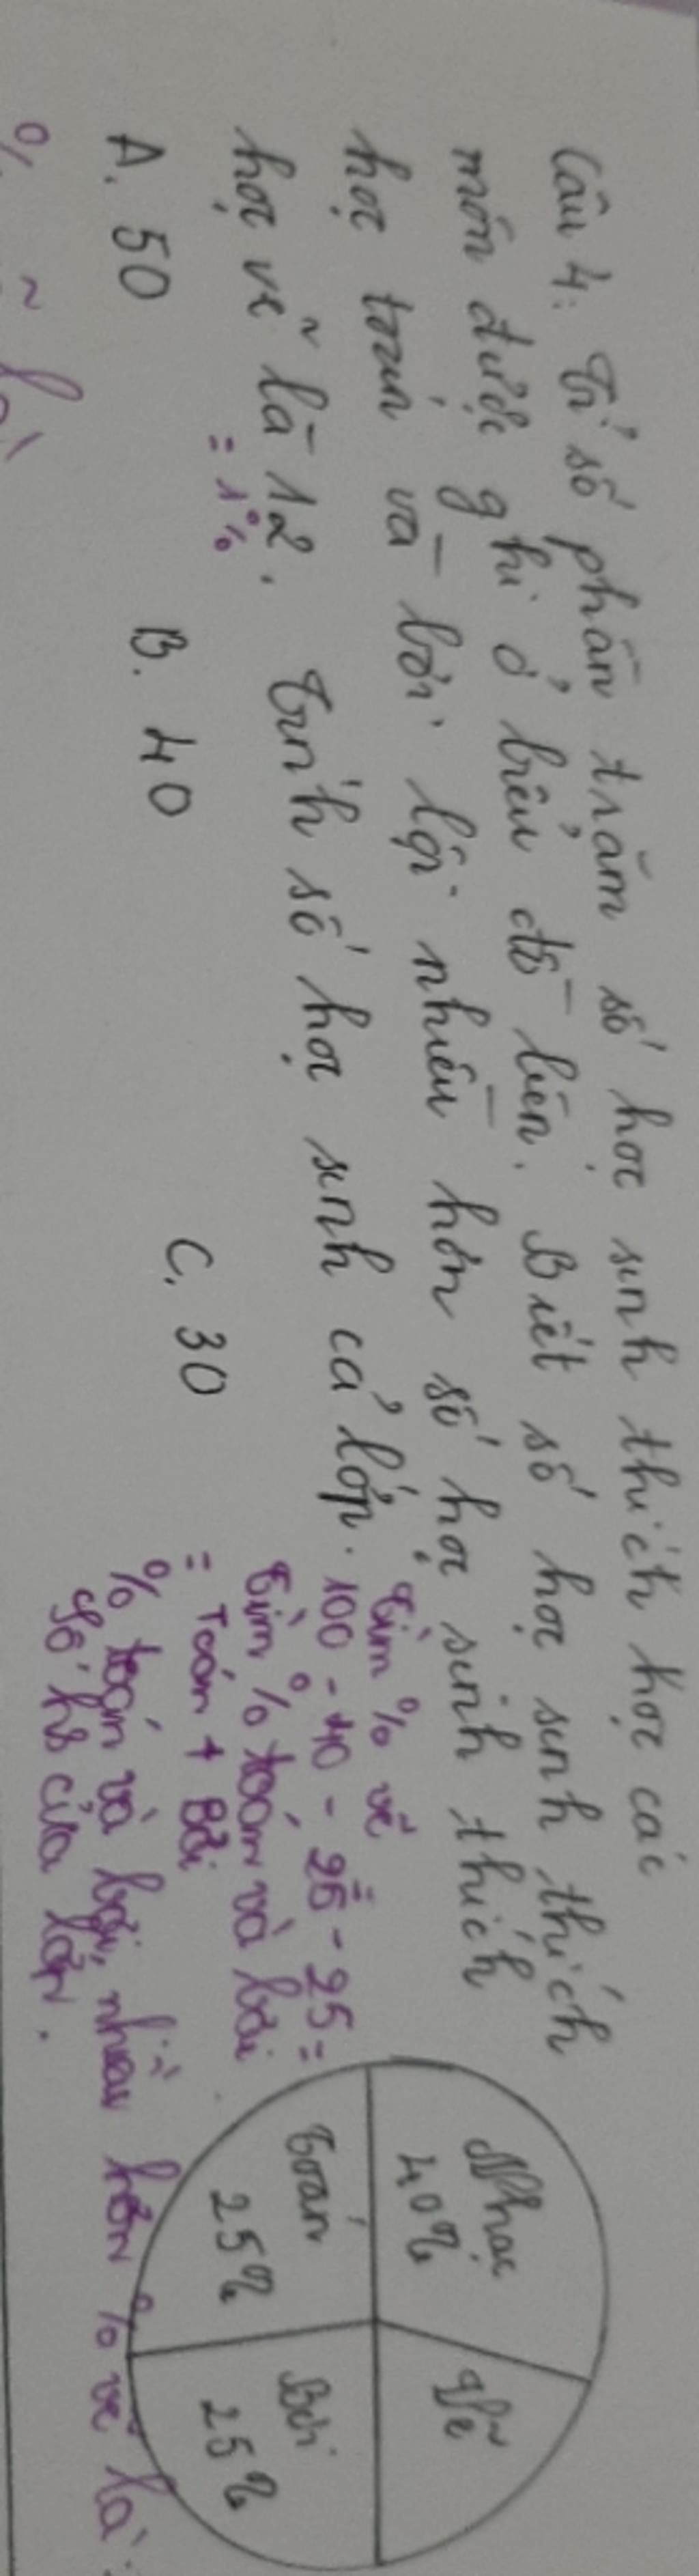 Câu 4: Tỉ số phần trăm số học sinh thích học các
môn được ghi ở biểu đồ bên. Biết số học sinh thích
học toán và bơi lội nhiều hơn số học sinh thích
học vẽ là 12. Tính số học sinh cả lớp.
= 1%
A. 50
B. 40
C. 30
Tìm % vẽ
100 - 40 - 25 - 25 =
Tìm % toán và bơi
= Toán + Bơi
% toán và bơi nhiều hơn % vẽ là:
Số hs của lớp.
Nhạc
40%
Vẽ
Toán
25%
Bơi
25%